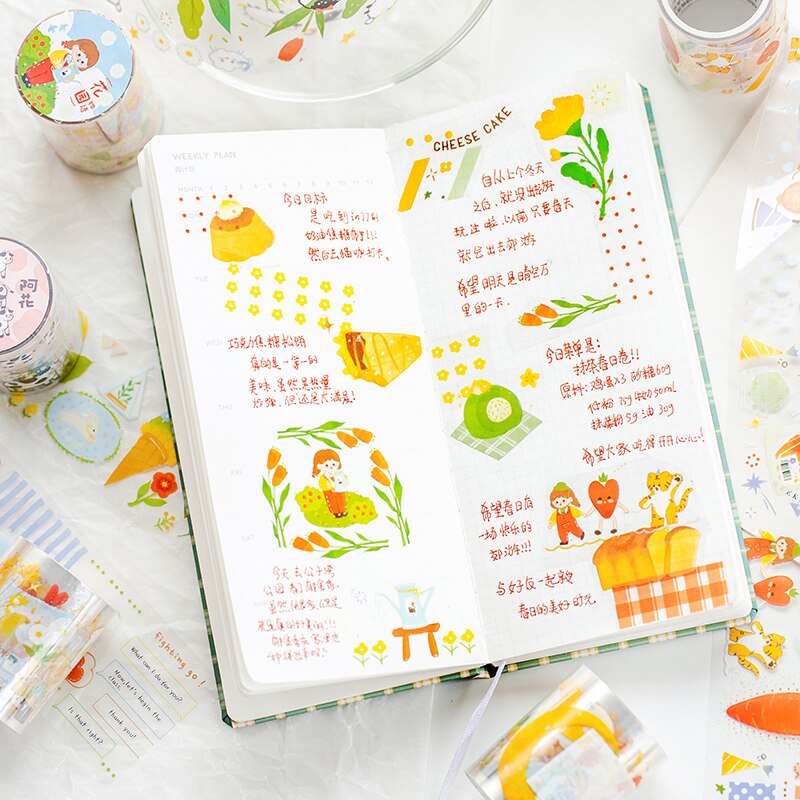 花园
物语
阿花
WEEKLY PLAN
周计划
MONTH 1 2 3 4 5 6 7 8 9 10 11 12
今日目标
是吃到
奶油焦糖
然后去猫咖打卡
TUE
WED
巧克力焦糖松饼
真的是一等一的
美味 虽然是热量
炸弹,但还是大满足!
THU
FRI
SAT
今天去公子湾
公园
CHEESE CAKE
自从上个冬天
之后,就没出去好好
玩过啦,以前只要春天
就会出去郊游
希望明天是晴空万
里的一天.
今日菜单是:
抹茶春日卷!!
原料:鸡蛋X3 砂糖60g
低粉 牛奶50ml
抹茶粉5g 油 30g
希望大家吃得开心!
希望春日有
一场快乐的
郊游!!!
与好友一起享受
春日的美好时光
fighting go!
What can I do for you?
Now, let's begin the
class.
thank you!
Is that right?